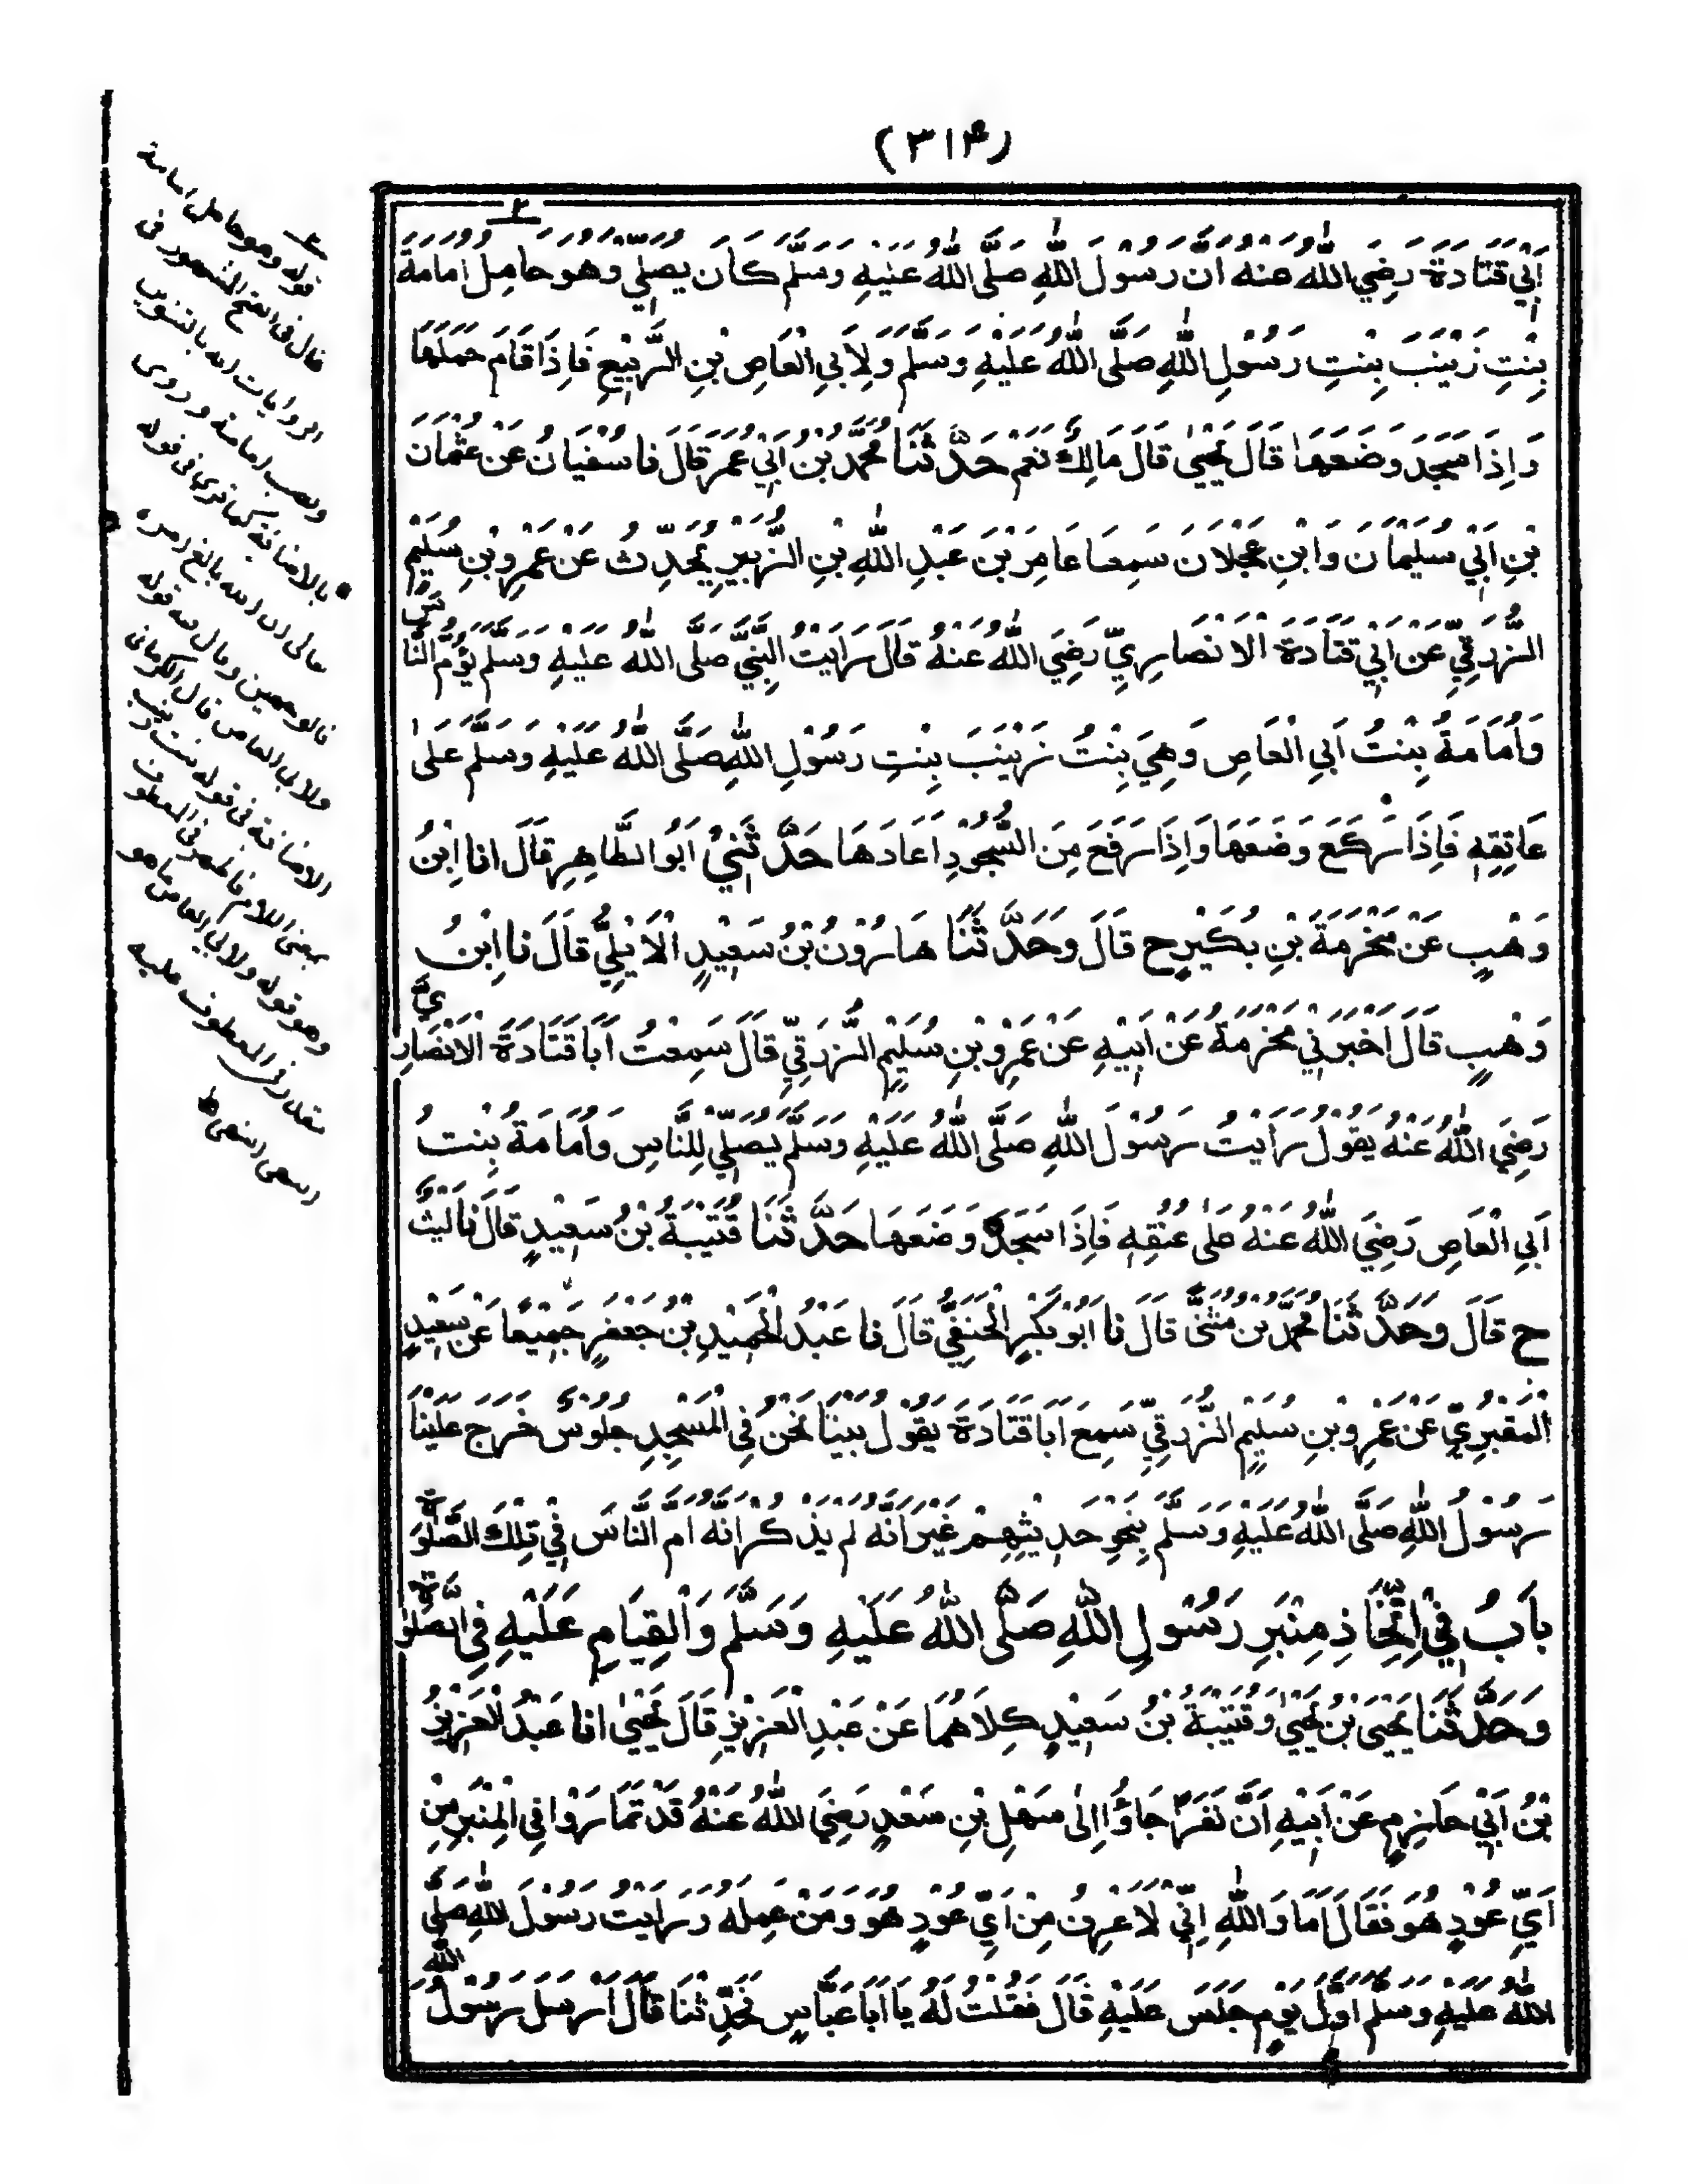 (٣١٤)
٢
اَبِيْ قَتَادَةَ رَضِيَ اللّٰهُ عَنْهُ اَنَّ رَسُوْلَ اللّٰهِ صَلَّى اللّٰهُ عَلَيْهِ وَسَلَّمَ كَانَ يُصَلِّيْ وَهُوَ حَامِلٌ اُمَامَةَ
بِنْتِ زَيْنَبَ بِنْتِ رَسُوْلِ اللّٰهِ صَلَّى اللّٰهُ عَلَيْهِ وَسَلَّمَ وَلِاَبِي الْعَاصِ بْنِ الرَّبِيْعِ فَاِذَا قَامَ حَمَلَهَا
وَاِذَا سَجَدَ وَضَعَهَا قَالَ يَحْيٰى قَالَ مَالِكٌ نَعَمْ حَدَّثَنَا مُحَمَّدُ بْنُ اَبِيْ عُمَرَ قَالَ نا سُفْيَانُ عَنْ عُثْمَانَ
بْنِ اَبِيْ سُلَيْمَانَ وَابْنِ عَجْلَانَ سَمِعَا عَامِرَ بْنَ عَبْدِ اللّٰهِ بْنِ الزُّبَيْرِ يُحَدِّثُ عَنْ عَمْرِو بْنِ سُلَيْمٍ
الزُّرَقِيِّ عَنْ اَبِيْ قَتَادَةَ الْاَنْصَارِيِّ رَضِيَ اللّٰهُ عَنْهُ قَالَ رَاَيْتُ النَّبِيَّ صَلَّى اللّٰهُ عَلَيْهِ وَسَلَّمَ يَؤُمُّ النَّاسَ
وَاُمَامَةُ بِنْتُ اَبِي الْعَاصِ وَهِيَ بِنْتُ زَيْنَبَ بِنْتِ رَسُوْلِ اللّٰهِ صَلَّى اللّٰهُ عَلَيْهِ وَسَلَّمَ عَلٰى
عَاتِقِهٖ فَاِذَا رَكَعَ وَضَعَهَا وَاِذَا رَفَعَ مِنَ السُّجُوْدِ اَعَادَهَا حَدَّثَنِيْ اَبُو الطَّاهِرِ قَالَ انا ابْنُ
وَهْبٍ عَنْ مَخْرَمَةَ بْنِ بُكَيْرٍ ح قَالَ وَحَدَّثَنَا هَارُوْنُ بْنُ سَعِيْدٍ الْاَيْلِيُّ قَالَ نا ابْنُ
وَهْبٍ قَالَ اَخْبَرَنِيْ مَخْرَمَةُ عَنْ اَبِيْهِ عَنْ عَمْرِو بْنِ سُلَيْمٍ الزُّرَقِيِّ قَالَ سَمِعْتُ اَبَا قَتَادَةَ الْاَنْصَارِيَّ
رَضِيَ اللّٰهُ عَنْهُ يَقُوْلُ رَاَيْتُ رَسُوْلَ اللّٰهِ صَلَّى اللّٰهُ عَلَيْهِ وَسَلَّمَ يُصَلِّيْ لِلنَّاسِ وَاُمَامَةُ بِنْتُ
اَبِي الْعَاصِ رَضِيَ اللّٰهُ عَنْهُ عَلٰى عُنُقِهٖ فَاِذَا سَجَدَ وَضَعَهَا حَدَّثَنَا قُتَيْبَةُ بْنُ سَعِيْدٍ قَالَ نا لَيْثٌ
ح قَالَ وَحَدَّثَنَا مُحَمَّدُ بْنُ مُثَنًّى قَالَ نَا اَبُوْ بَكْرٍ الْحَنَفِيُّ قَالَ نا عَبْدُ الْحَمِيْدِ بْنُ جَعْفَرٍ جَمِيْعًا عَنْ سَعِيْدٍ
الْمَقْبُرِيِّ عَنْ عَمْرِو بْنِ سُلَيْمٍ الزُّرَقِيِّ سَمِعَ اَبَا قَتَادَةَ يَقُوْلُ بَيْنَا نَحْنُ فِي الْمَسْجِدِ جُلُوْسٌ خَرَجَ عَلَيْنَا
رَسُوْلُ اللّٰهِ صَلَّى اللّٰهُ عَلَيْهِ وَسَلَّمَ بِنَحْوِ حَدِيْثِهِمْ غَيْرَ اَنَّهُ لَمْ يَذْكُرْ اَنَّهُ اَمَّ النَّاسَ فِيْ تِلْكَ الصَّلٰوةِ
بَابٌ فِي اتِّخَاذِ مِنْبَرِ رَسُوْلِ اللّٰهِ صَلَّى اللّٰهُ عَلَيْهِ وَسَلَّمَ وَالْقِيَامِ عَلَيْهِ فِي الصَّلٰوةِ
وَحَدَّثَنَا يَحْيَى بْنُ يَحْيٰى وَقُتَيْبَةُ بْنُ سَعِيْدٍ كِلَاهُمَا عَنْ عَبْدِ الْعَزِيْزِ قَالَ يَحْيٰى انا عَبْدُ الْعَزِيْزِ
بْنُ اَبِيْ حَازِمٍ عَنْ اَبِيْهِ اَنَّ نَفَرًا جَاؤُا اِلٰى سَهْلِ بْنِ سَعْدٍ رَضِيَ اللّٰهُ عَنْهُ قَدْ تَمَارَوْا فِي الْمِنْبَرِ مِنْ
اَيِّ عُوْدٍ هُوَ فَقَالَ اَمَا وَاللّٰهِ اِنِّيْ لَاَعْرِفُ مِنْ اَيِّ عُوْدٍ هُوَ وَمَنْ عَمِلَهُ وَرَاَيْتُ رَسُوْلَ اللّٰهِ صَلَّى
اللّٰهُ عَلَيْهِ وَسَلَّمَ اَوَّلَ يَوْمٍ جَلَسَ عَلَيْهِ قَالَ فَقُلْتُ لَهُ يَا اَبَا عَبَّاسٍ فَحَدِّثْنَا قَالَ اَرْسَلَ رَسُوْلُ اللّٰهِ
قوله وهو حامل امامة
قال فى الفتح المشهور فى
الروايات بالتنوين
ونصب امامة وروى
بالاضافة كما قرئ فى قوله
تعالى ان الله بالغ امره
بالوجهين وقال فى قوله
ولابى العاص قال الكرمانى
الاضافة فى قوله بنت زينب
بمعنى اللام فاظهر فى المعطوف
وهو قوله ولابى العاص ما هو
مقدر فى المعطوف عليه
انتهى